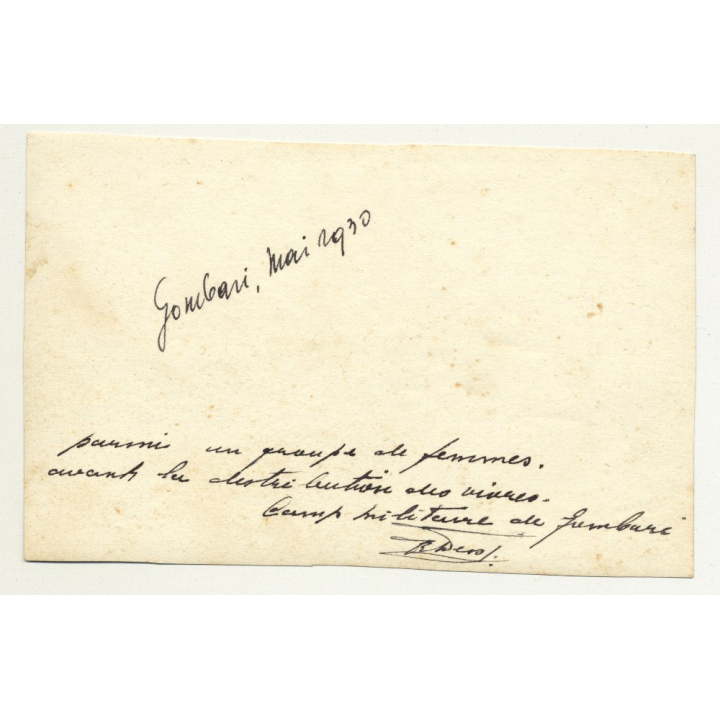 Gombari, Mai 1930
parmi un groupe de femmes.
avant la distribution des vivres.
Camp militaire de Gombari